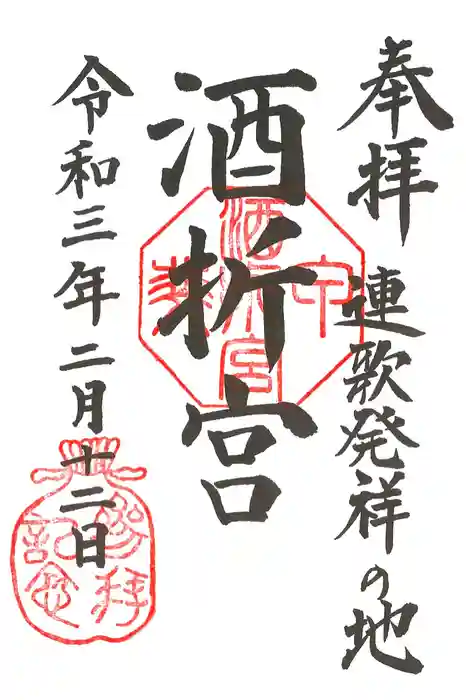 奉拝 連歌発祥の地
酒折宮
令和三年二月十二日
酒折宮
参拝
記念